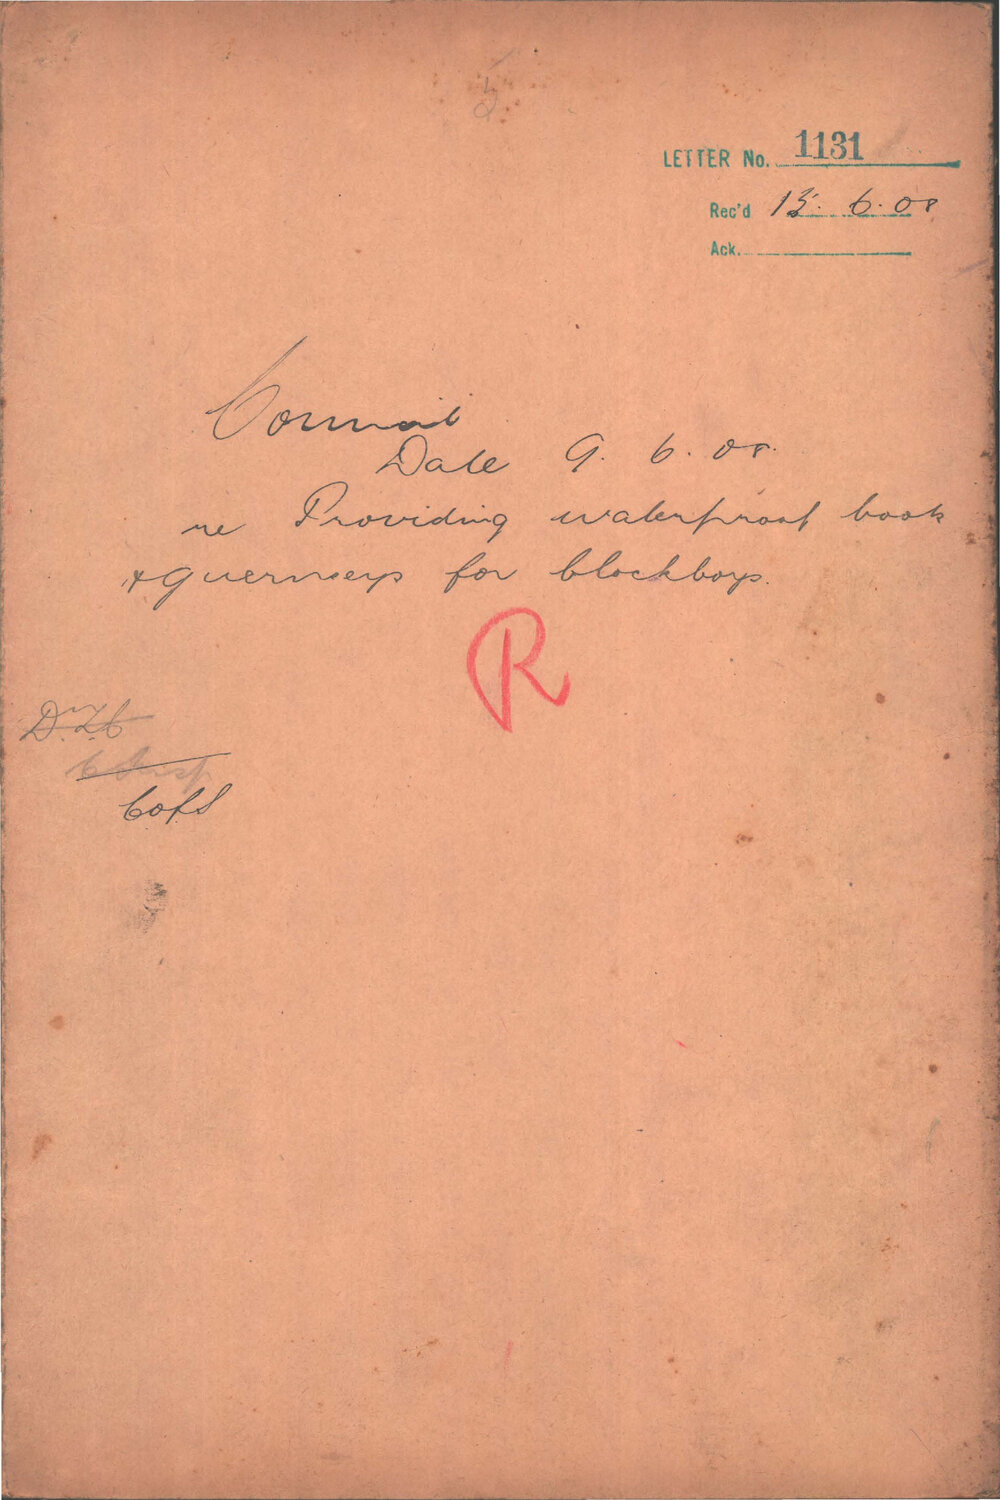 LETTER No. 1131
Rec'd 15. 6. 08
Ack.
Council
Date 9. 6. 08.
re Providing waterproof boots
& guernseys for blockboys.
R
C of S